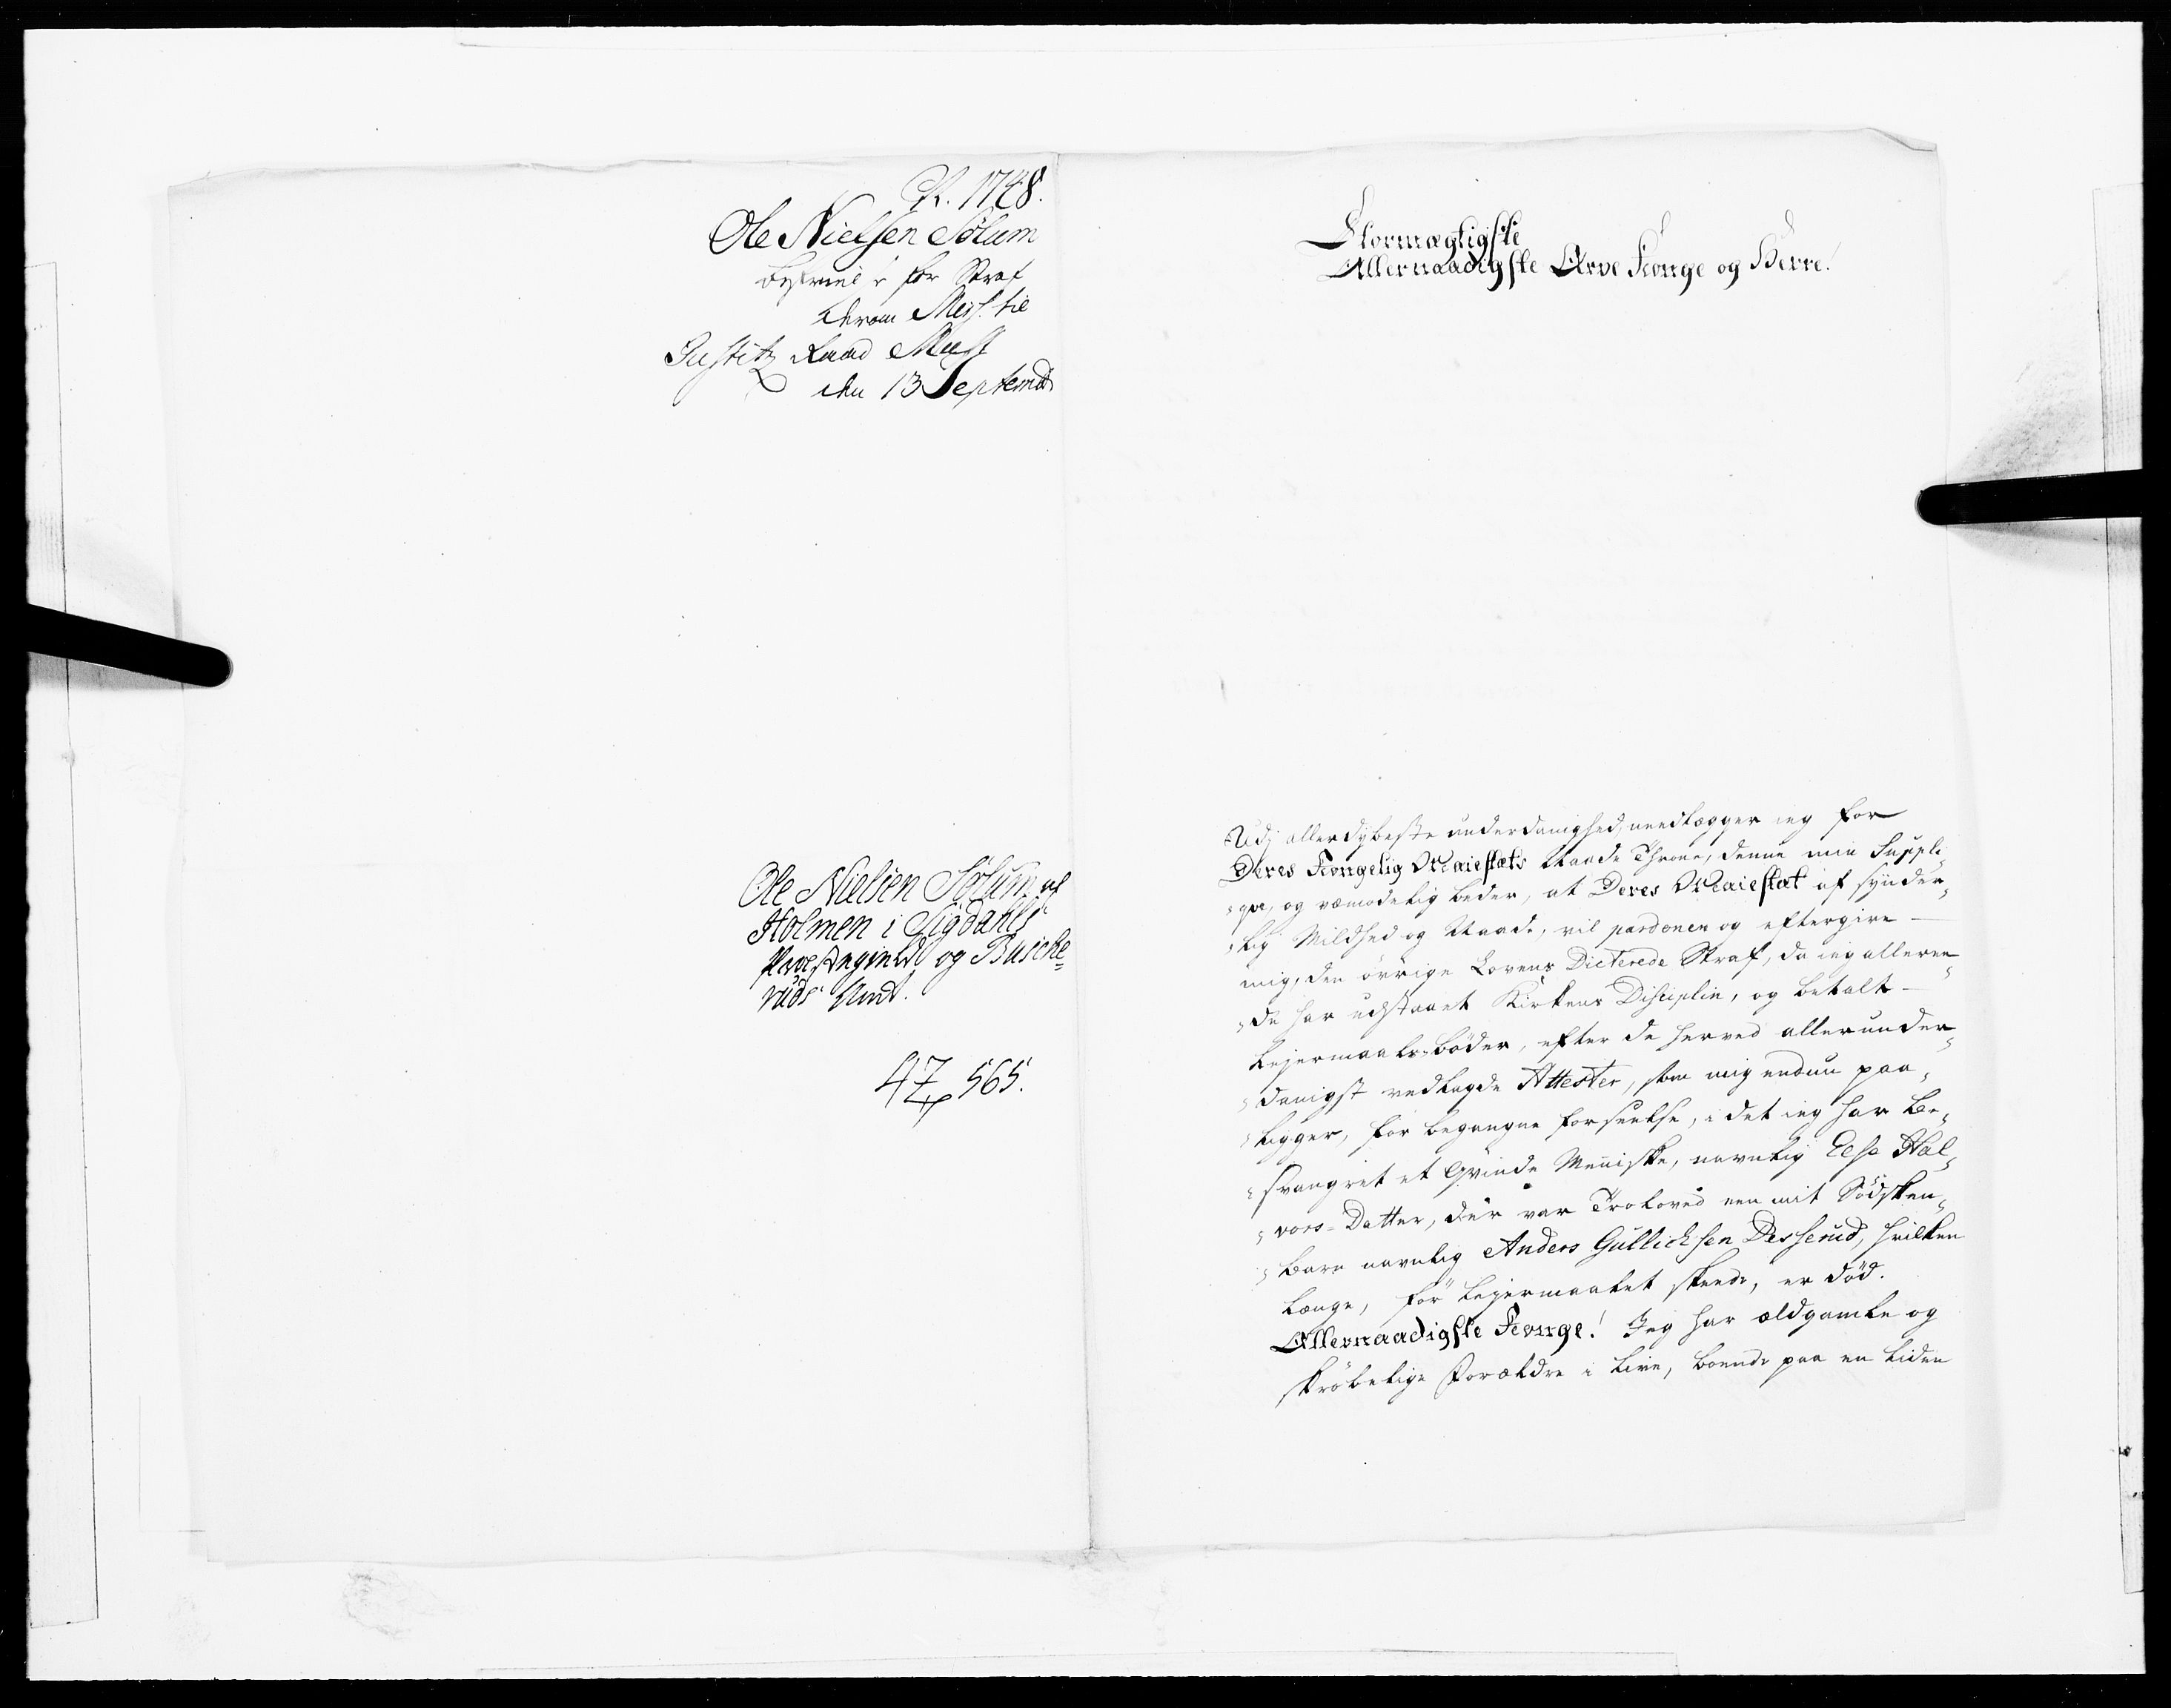 R. 1748.
Ole Nielsen Sølum
befriel&r for Straf
derom Miss. til
Justitz Raad
den 13 Septembr
Ole Nielsen Sølum af
Holmen i Sigdahls
Præstegield og Buscke=
ruds Amt.
47 565.
Stormægtigste
Allernaadigste Arve Konge og Herre!
Udj allerdybeste underdanighed, needlægger ieg for
Deres Kongelig Maiestæts Naade Throne, denne min Suppli
=qve, og vemodelig beder, at Deres Maiestæt af synder=
=lig Mildhed og Naade, vil pardonen og eftergive
mig, den øvrige Lovens Dicterede Straf, da ieg alleree=
=de har udstaaet Kirkens Disciplin, og betalt
Lejermaals-bøder, efter de herved allerunder=
=danigst vedlagde Attester, som mig endnu paa=
=ligger, for begangne forseelse, i det ieg har be=
=svangret et Qvinde Menniske, navnlig Else Hal=
=vors=Datter, der var Troloved een mit Sødsken=
=barn navnlig Anders Gullichsen Desserud, hvilken
længe, før Lejermaalet skeede, er død.
Allernaadigste Konge! Jeg har ældgamle og
skrøbelige Forældre i Live, boende paa en liden